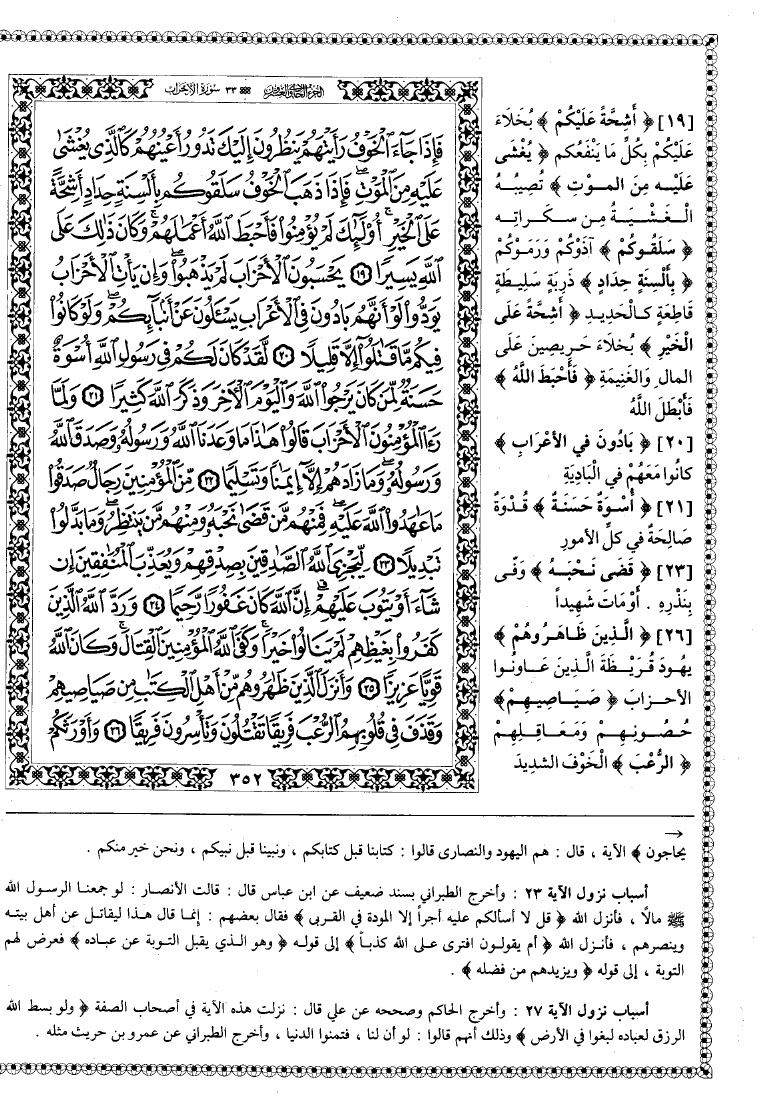 ٣٣ سورة الأحزاب
الجزء الحادي والعشرون
فَإِذَا جَآءَ ٱلْخَوْفُ رَأَيْتَهُمْ يَنظُرُونَ إِلَيْكَ تَدُورُ أَعْيُنُهُمْ كَٱلَّذِى يُغْشَىٰ
عَلَيْهِ مِنَ ٱلْمَوْتِ ۖ فَإِذَا ذَهَبَ ٱلْخَوْفُ سَلَقُوكُم بِأَلْسِنَةٍ حِدَادٍ أَشِحَّةً
عَلَى ٱلْخَيْرِ ۚ أُو۟لَٰٓئِكَ لَمْ يُؤْمِنُوا۟ فَأَحْبَطَ ٱللَّهُ أَعْمَٰلَهُمْ ۚ وَكَانَ ذَٰلِكَ عَلَى
ٱللَّهِ يَسِيرًا ١٩ يَحْسَبُونَ ٱلْأَحْزَابَ لَمْ يَذْهَبُوا۟ ۖ وَإِن يَأْتِ ٱلْأَحْزَابُ
يَوَدُّوا۟ لَوْ أَنَّهُم بَادُونَ فِى ٱلْأَعْرَابِ يَسْـَٔلُونَ عَنْ أَنۢبَآئِكُمْ ۖ وَلَوْ كَانُوا۟
فِيكُم مَّا قَٰتَلُوٓا۟ إِلَّا قَلِيلًا ٢٠ لَّقَدْ كَانَ لَكُمْ فِى رَسُولِ ٱللَّهِ أُسْوَةٌ
حَسَنَةٌ لِّمَن كَانَ يَرْجُوا۟ ٱللَّهَ وَٱلْيَوْمَ ٱلْـَٔاخِرَ وَذَكَرَ ٱللَّهَ كَثِيرًا ٢١ وَلَمَّا
رَءَا ٱلْمُؤْمِنُونَ ٱلْأَحْزَابَ قَالُوا۟ هَٰذَا مَا وَعَدَنَا ٱللَّهُ وَرَسُولُهُۥ وَصَدَقَ ٱللَّهُ
وَرَسُولُهُۥ ۚ وَمَا زَادَهُمْ إِلَّآ إِيمَٰنًا وَتَسْلِيمًا ٢٢ مِّنَ ٱلْمُؤْمِنِينَ رِجَالٌ صَدَقُوا۟
مَا عَٰهَدُوا۟ ٱللَّهَ عَلَيْهِ ۖ فَمِنْهُم مَّن قَضَىٰ نَحْبَهُۥ وَمِنْهُم مَّن يَنتَظِرُ ۖ وَمَا بَدَّلُوا۟
تَبْدِيلًا ٢٣ لِّيَجْزِىَ ٱللَّهُ ٱلصَّٰدِقِينَ بِصِدْقِهِمْ وَيُعَذِّبَ ٱلْمُنَٰفِقِينَ إِن
شَآءَ أَوْ يَتُوبَ عَلَيْهِمْ ۚ إِنَّ ٱللَّهَ كَانَ غَفُورًا رَّحِيمًا ٢٤ وَرَدَّ ٱللَّهُ ٱلَّذِينَ
كَفَرُوا۟ بِغَيْظِهِمْ لَمْ يَنَالُوا۟ خَيْرًا ۚ وَكَفَى ٱللَّهُ ٱلْمُؤْمِنِينَ ٱلْقِتَالَ ۚ وَكَانَ ٱللَّهُ
قَوِيًّا عَزِيزًا ٢٥ وَأَنزَلَ ٱلَّذِينَ ظَٰهَرُوهُم مِّنْ أَهْلِ ٱلْكِتَٰبِ مِن صَيَاصِيهِمْ
وَقَذَفَ فِى قُلُوبِهِمُ ٱلرُّعْبَ فَرِيقًا تَقْتُلُونَ وَتَأْسِرُونَ فَرِيقًا ٢٦ وَأَوْرَثَكُمْ
٣٥٢
[١٩] ﴿ أَشِحَّةً عَلَيْكُمْ ﴾ بُخَلَاءَ
عَلَيْكُمْ بِكُلِّ مَا يَنْفَعُكم ﴿ يُغْشَى
عَلَيْهِ مِنَ المَوْتِ ﴾ تُصِيبُهُ
الْغَشْيَةُ مِن سَكَرَاتِهِ
﴿ سَلَقُوكُمْ ﴾ آذَوْكُمْ وَرَمَوْكُمْ
﴿ بِأَلْسِنَةٍ حِدَادٍ ﴾ ذَرِبَةٍ سَلِيطَةٍ
قَاطِعَةٍ كَالْحَدِيدِ ﴿ أَشِحَّةً عَلَى
الْخَيْرِ ﴾ بُخَلَاءَ حَرِيصِينَ عَلَى
المالِ وَالغَنِيمَةِ ﴿ فَأَحْبَطَ اللَّهُ ﴾
فَأَبْطَلَ اللَّهُ
[٢٠] ﴿ بَادُونَ في الأَعْرَابِ ﴾
كانُوا مَعَهُمْ في الْبَادِيَةِ
[٢١] ﴿ أُسْوَةٌ حَسَنَةٌ ﴾ قُدْوَةٌ
صَالِحَةٌ في كلِّ الأمورِ
[٢٣] ﴿ قَضَى نَحْبَهُ ﴾ وَفَى
بِنَذْرِهِ . أَوْ مَاتَ شَهِيداً
[٢٦] ﴿ الَّذِينَ ظَاهَرُوهُمْ ﴾
يهُودَ قُرَيْظَةَ الَّذِينَ عَاوَنُوا
الأحزابَ ﴿ صَيَاصِيهِمْ ﴾
حُصُونِهِمْ وَمَعَاقِلِهِمْ
﴿ الرُّعْبَ ﴾ الْخَوْفَ الشدِيدَ
→
يحاجون ﴾ الآية ، قال : هم اليهود والنصارى قالوا : كتابنا قبل كتابكم ، ونبينا قبل نبيكم ، ونحن خير منكم .
أسباب نزول الآية ٢٣ : وأخرج الطبراني بسند ضعيف عن ابن عباس قال : قالت الأنصار : لو جمعنا الرسول الله
ﷺ مالاً ، فأنزل الله ﴿ قل لا أسألكم عليه أجراً إلا المودة في القربى ﴾ فقال بعضهم : إنما قال هذا ليقاتل عن أهل بيته
وينصرهم ، فأنزل الله ﴿ أم يقولون افترى على الله كذباً ﴾ إلى قوله ﴿ وهو الذي يقبل التوبة عن عباده ﴾ فعرض لهم
التوبة ، إلى قوله ﴿ ويزيدهم من فضله ﴾ .
أسباب نزول الآية ٢٧ : وأخرج الحاكم وصححه عن علي قال : نزلت هذه الآية في أصحاب الصفة ﴿ ولو بسط الله
الرزق لعباده لبغوا في الأرض ﴾ وذلك أنهم قالوا : لو أن لنا ، فتمنوا الدنيا ، وأخرج الطبراني عن عمرو بن حريث مثله .